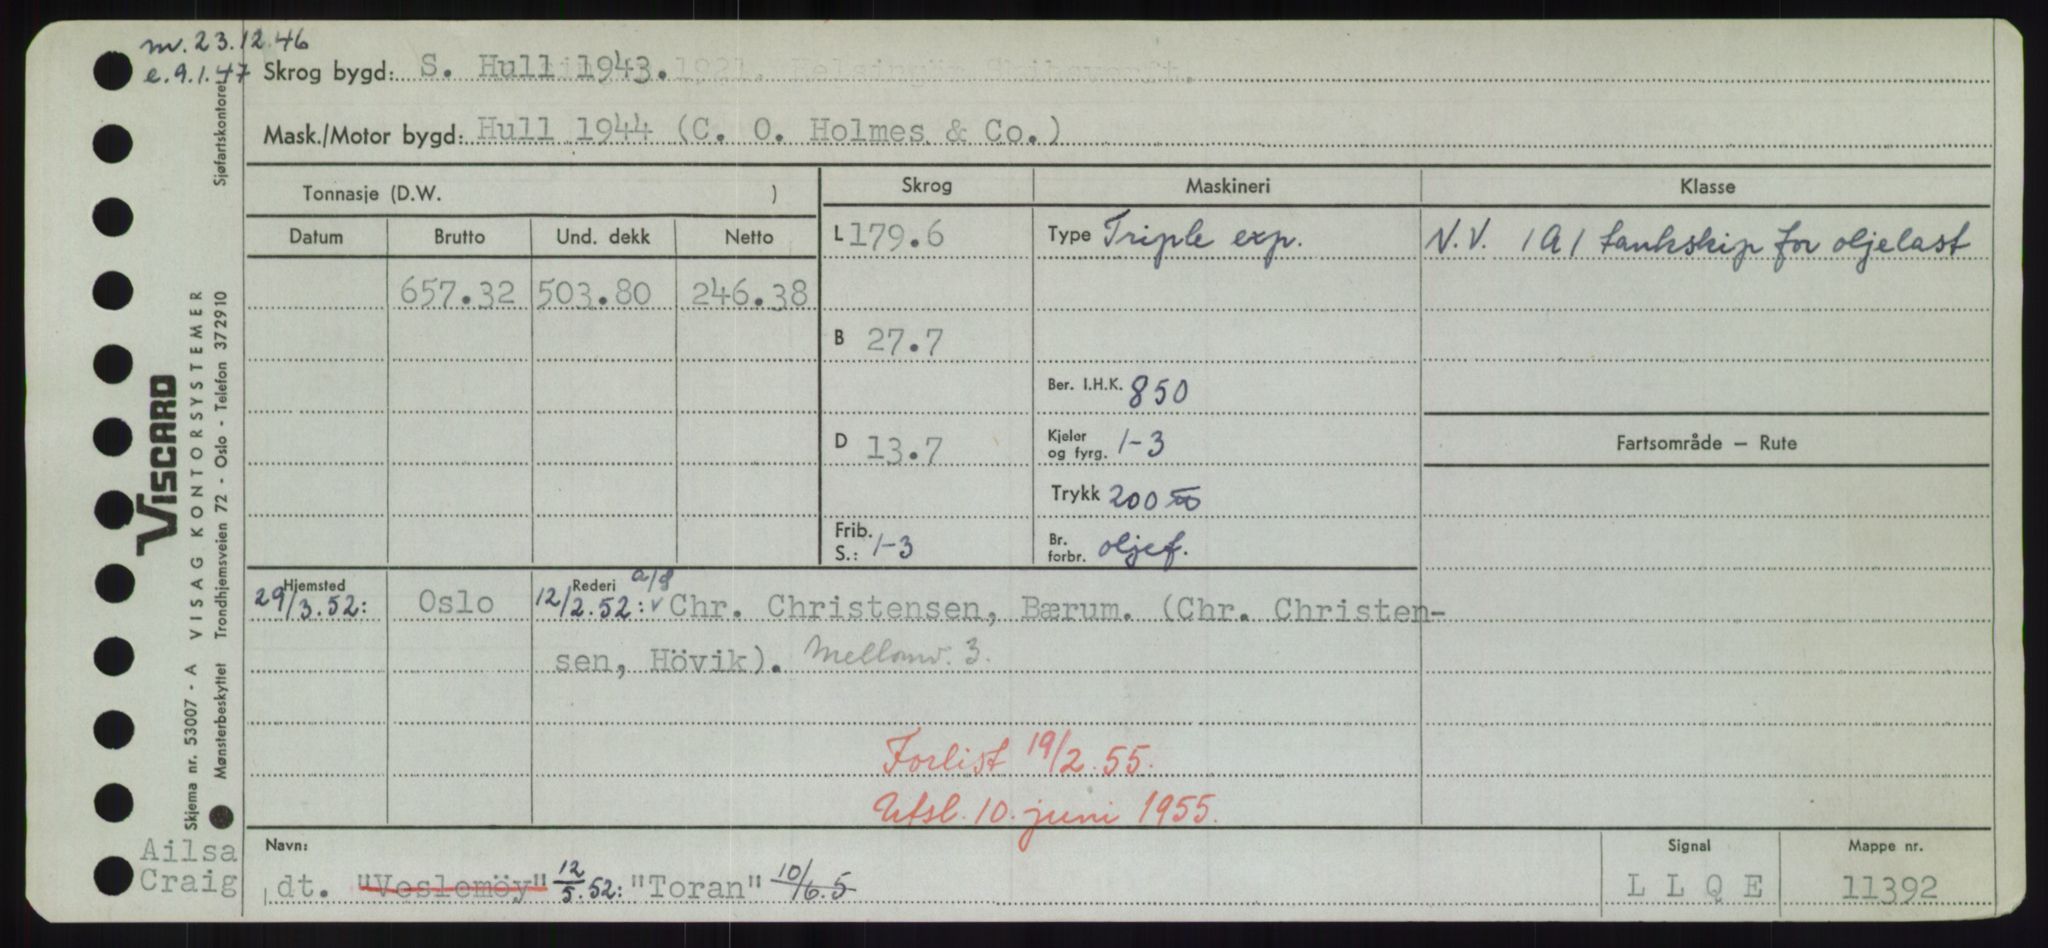 m. 23.12.46
e. 9.1.47
Skrog bygd: S. Hull 1943.
Mask./Motor bygd: Hull 1944 (C. O. Holmes & Co.)
Tonnasje (D.W. )
Skrog Maskineri Klasse
Datum Brutto Und. dekk Netto
L 179.6 Type Triple exp. N.V. 1A1 tankskip for oljelast
657.32 503.80 246.38
B 27.7
Ber. I.H.K. 850
D 13.7 Kjeler og fyrg. 1-3 Fartsområde – Rute
Trykk 200
Frib. S.: 1-3 Br. forbr. oljef.
Hjemsted Rederi
29/3.52: Oslo 12/2.52: a/s Chr. Christensen, Bærum. (Chr. Christen-
sen, Hövik). Mellomv. 3.
Forlist 19/2.55.
Utsl. 10. juni 1955.
Navn: Signal Mappe nr.
Ailsa
Craig dt. "Veslemöy" 12/5.52: "Toran" 10/6.5 L L Q E 11392
Sjøfartskontoret
VISCARD
VISAG KONTORSYSTEMER
Skjema nr. 53007 - A
Mønsterbeskyttet Trondhjemsveien 72 - Oslo - Telefon 372910